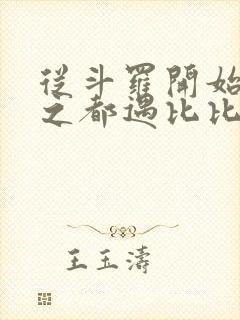 從斗羅開始
之都遇比比
王玉濤